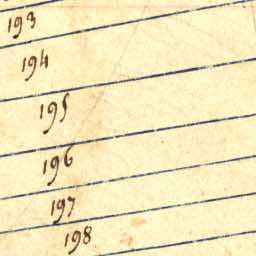 193
194
195
196
197
198